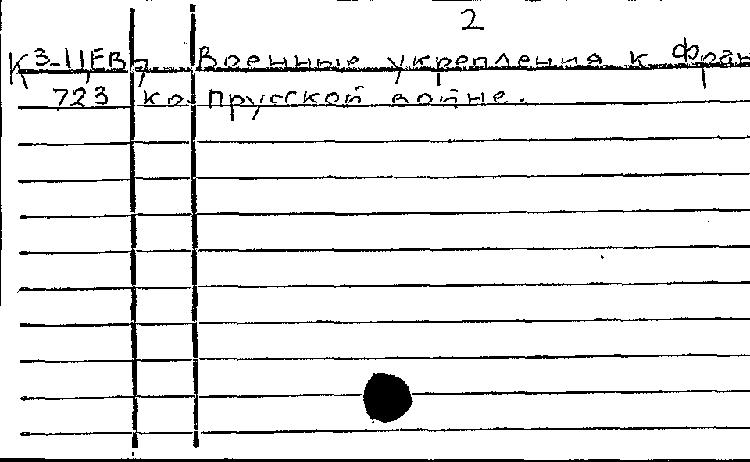 2
К 3-11/ЕВр Военные укрепления к Фран
723 ко прусской войне.